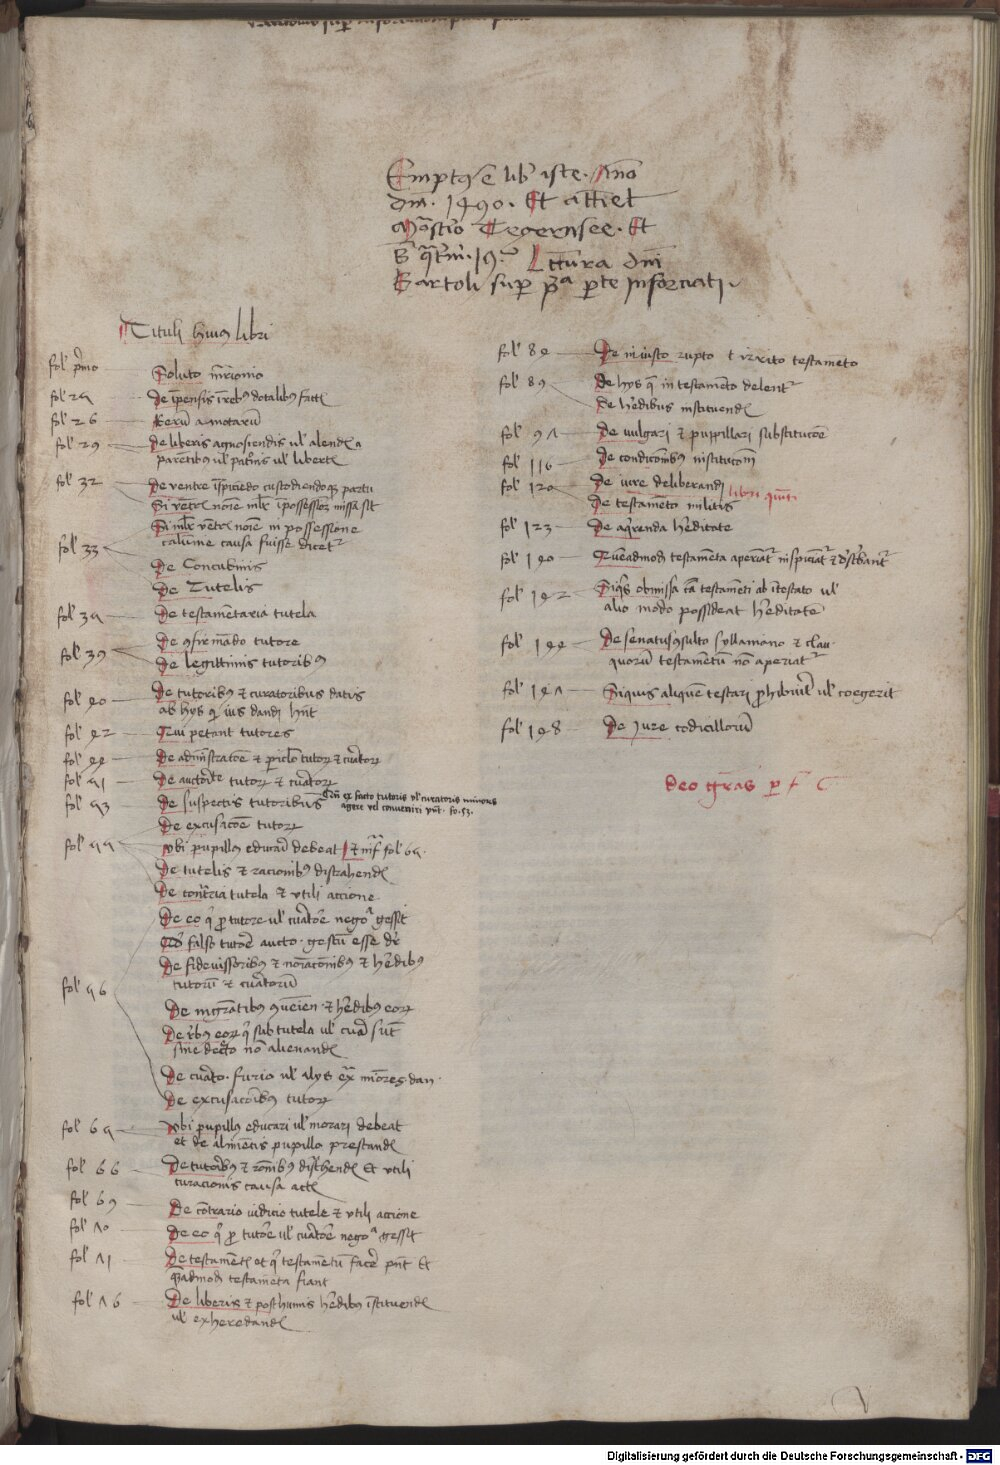 Emptus e lib' iste. Anno
dni. 1490. Et attinet
Monasterio Tegernsee. Et
Lectura dni
Bartoli super prima parte Inforciati.
Tituli huius libri
fol' primo Soluto matrimonio
fol' 24 De impensis in rebus dotalibus factis
fol' 26 Rerum amotarum
fol' 29 De liberis agnoscendis vel alendis a
parentibus vel patronis vel libertis
fol' 32 De ventre inspiciendo custodiendoque partu
Si ventris nomine mulier in possessionem missa sit
Si mulier ventris nomine in possessione
calumnie causa fuisse dicetur
fol' 33
De Concubinis
De Tutelis
fol' 34 De testamentaria tutela
fol' 39 De confirmando tutore
De legittimis tutoribus
fol' 40 De tutoribus et curatoribus datis
ab hys qui ius dandi habent
fol' 42 Qui petant tutores
fol' 44 De administracione et periculo tutorum et curatorum
fol' 51 De auctoritate tutorum et curatorum
fol' 53 De suspectis tutoribus Quando ex facto tutoris vel curatoris minores
agere vel conveniri possunt. fo. 53.
De excusacione tutorum
fol' 55 Ubi pupillus educari debeat et infra fol' 65.
De tutelis et racionibus distrahendis
De contraria tutela et utili accione
De eo qui pro tutore vel curatore negocia gessit
Quod falso tutore aucto. gestum esse dicatur
De fideiussoribus et nominacionibus et heredibus
tutorum et curatorum
fol' 56
De magistratibus convenien. et heredibus eorum
De rebus eorum qui sub tutela vel cura sunt
sine decreto non alienandis
De curato. furio vel alys extra minores dan.
De excusacionibus tutorum
fol' 65 Ubi pupillus educari vel morari debeat
et de alimentis pupillo prestandis
fol' 66 De tutoribus et racionibus distrahendis Et utili
curacionis causa actione
fol' 69 De contrario iudicio tutele et utili accione
fol' 70 De eo qui pro tutore vel curatore negocia gessit
fol' 71 De testamentis et qui testamentum facere possunt Et
quemadmodum testamenta fiant
fol' 76 De liberis et posthumis heredibus instituendis
vel exheredandis
fol' 84 De iniusto rupto et irrito testamento
fol' 89 De hys que in testamento delentur
De heredibus instituendis
fol' 97 De vulgari et pupillari substitucione
fol' 116 De condicionibus institucionum
fol' 120 De iure deliberandi
De testamento militis libri quinti
fol' 123 De acquirenda hereditate
fol' 140 Quemadmodum testamenta aperiantur inspiciantur et describantur
fol' 142 Siquis obmissa causa testamenti ab intestato vel
alio modo possideat hereditatem
fol' 144 De senatusconsulto syllaniano et clau.
quorum testamentum non aperiatur
fol' 147 Siquis aliquem testari prohibuerit vel coegerit
fol' 148 De Jure codicillorum
Deo gracias per f C
Digitalisierung gefördert durch die Deutsche Forschungsgemeinschaft - DFG